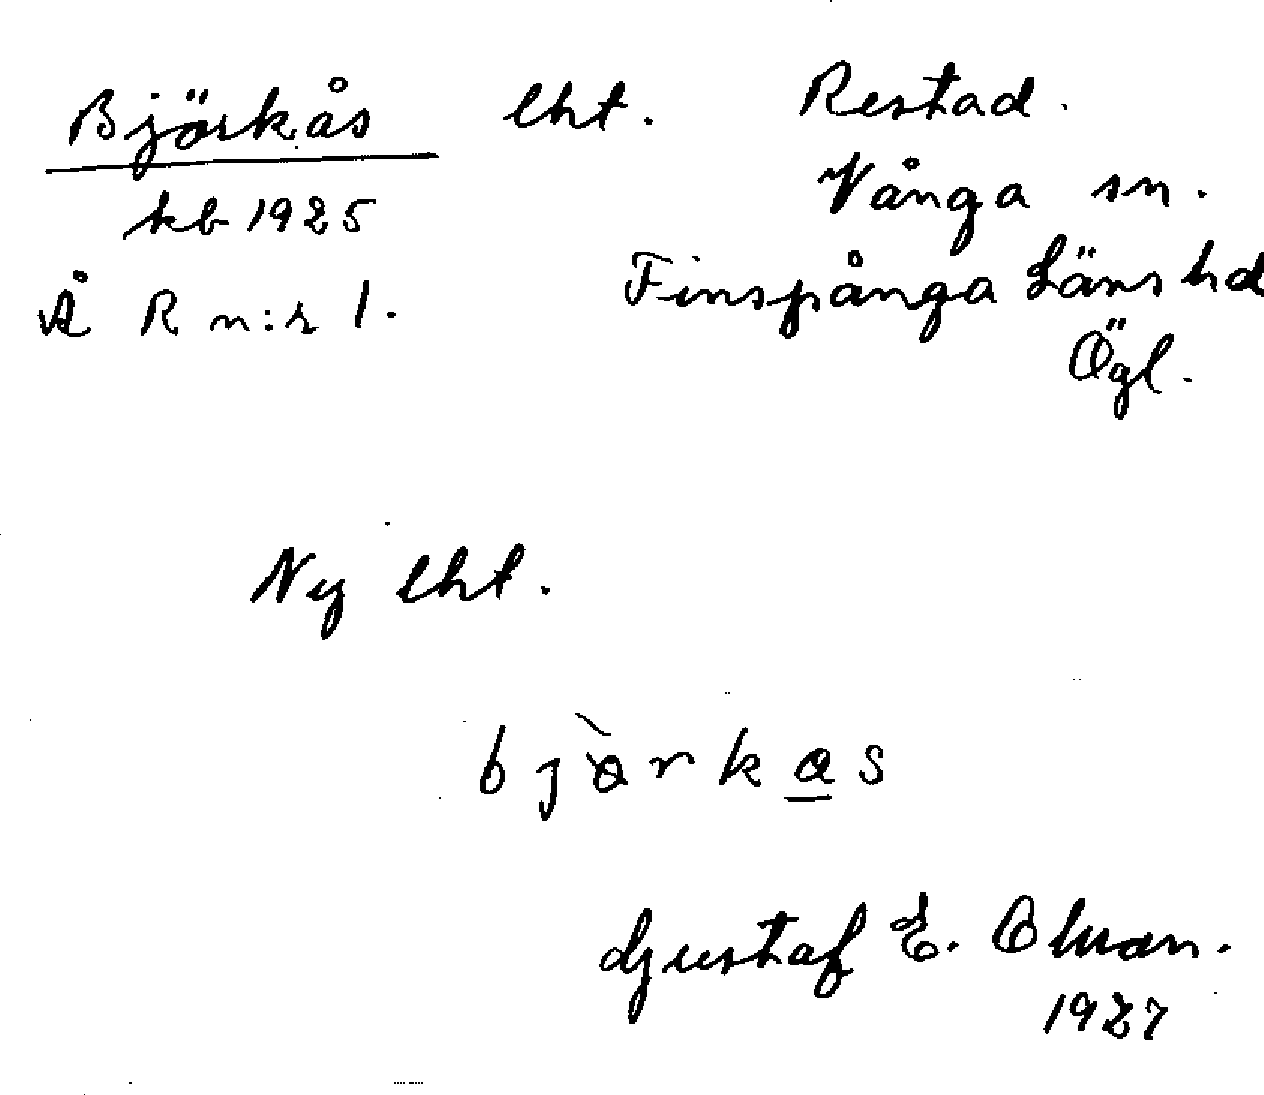 Björkås lht. Restad.
kb 1925 Vånga sn.
Å R n:r 1. Finspånga Läns hd
Ögl.
Ny lht.
bjòrkas
Gustaf E. Olsson.
1927